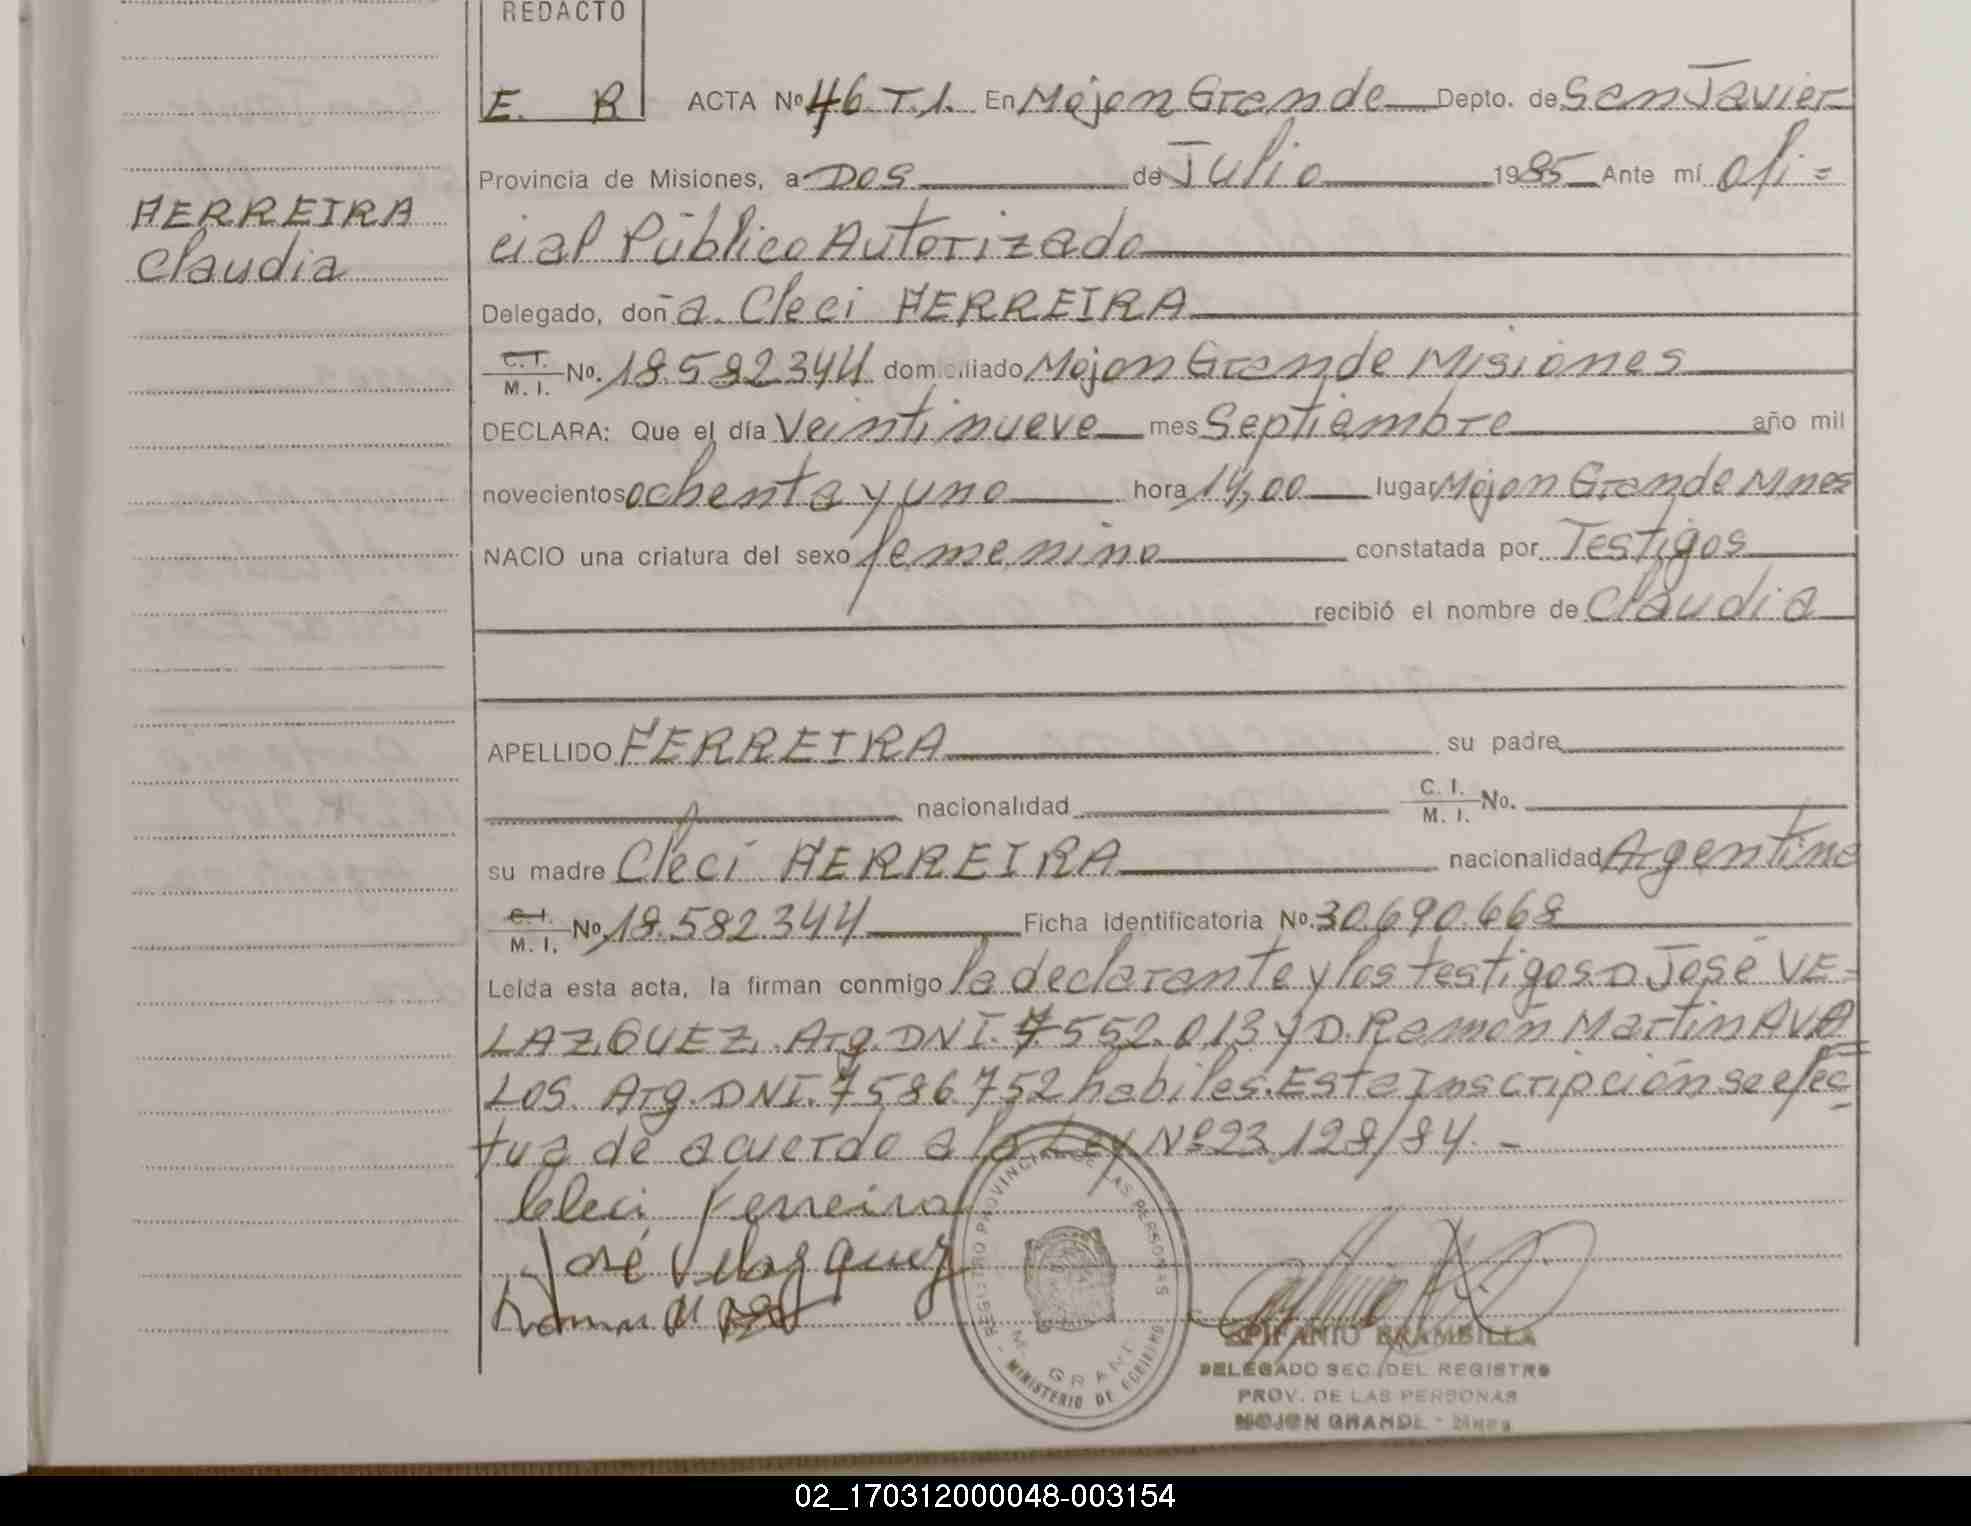 REDACTO
E. R
ACTA Nº 46.T.1. En Mojon Grande Depto. de San Javier
Provincia de Misiones, a DOS de Julio 1985 Ante mí ofi=
cial Público Autorizado
FERREIRA
Claudia
Delegado, doña. Cleci FERREIRA
C.I. / M. I. No. 18.582344 domiciliado Mojon Grande Misiones
DECLARA: Que el día Veintinueve mes Septiembre año mil
novecientos ochenta y uno hora 14,00 lugar Mojon Grande Mnes
NACIO una criatura del sexo femenino constatada por Testigos
recibió el nombre de Claudia
APELLIDO FERREIRA su padre
nacionalidad C. I. / M. I. No.
su madre Cleci FERREIRA nacionalidad Argentina
C.I. / M. I. No. 18.582.344 Ficha identificatoria No. 30.690.668
Leída esta acta, la firman conmigo la declarante y los testigos. D José VE=
LAZQUEZ. Arg. DNI. 7552.013 y D. Ramón Martin AVA
LOS. Arg. DNI. 7586752 habiles. Esta Inscripción se efec
tua de acuerdo a la Ley Nº 23.128/84. -
Cleci Ferreira
José Velazquez
Ramon
REGISTRO PROVINCIAL DE LAS PERSONAS
M. GRANDE
MINISTERIO DE GOBIERNO
EPIFANIO BRAMBILLA
DELEGADO SEC. DEL REGISTRO
PROV. DE LAS PERSONAS
MOJON GRANDE - Mnes.
02_170312000048-003154